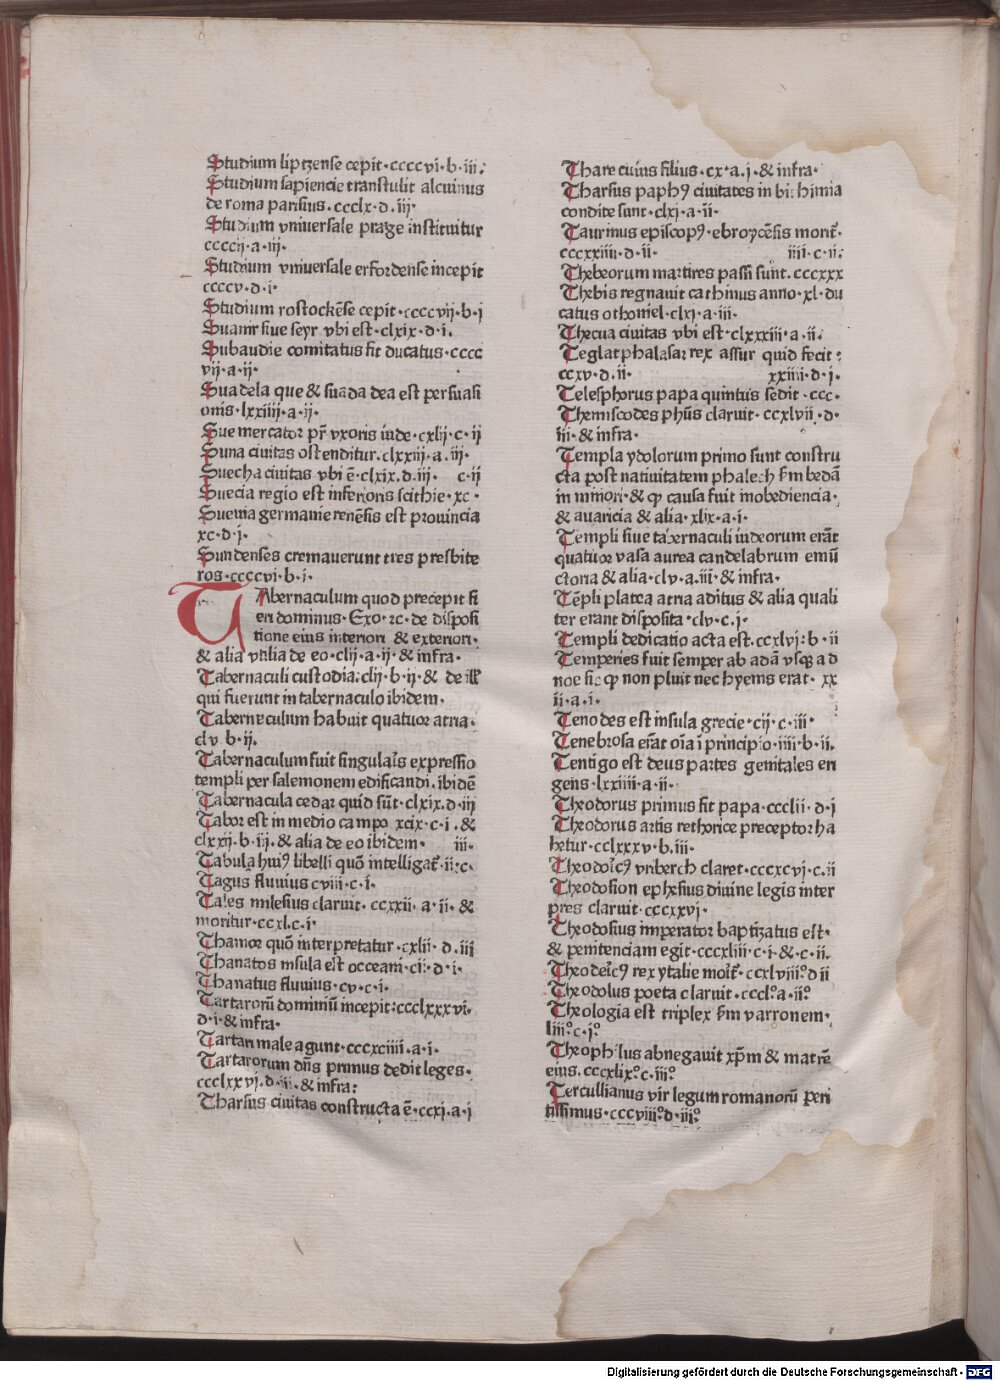 Studium liptzense cepit·ccccvi·b·iii:
Studium sapiencie transtulit alcuinus
de roma parisius.ccclx·d·iij·
Studium vniuersale prage instituitur
ccccij·a·iij·
Studium vniuersale erfordense incepit
ccccv·d·i·
Studium rostockēse cepit·ccccvij·b·j
Suanir siue seyr vbi est·clxix·d·i.
Subaudie comitatus fit ducatus·cccc
vij·a·ij·
Suadela que & suada dea est persuasi
onis·lxxiiij·a·ij·
Sue mercator pr̄ vxoris iude·cxlij·c·ij
Suna ciuitas ostenditur.clxxiij·a.iij·
Suecha ciuitas vbi ē·clxix.d.iij· c·ij
Suecia regio est inferioris scithie·xc·
Sueuia germanie renēsis est prouincia
xc·d·j·
Sundenses cremauerunt tres presbite
ros·ccccvi·b·i·
TAbernaculum quod precepit fi
eri dominus·Exo·zc·de disposi
tione eius interiori & exteriori·
& alia vtilia de eo·clij·a·ij·& infra·
Tabernaculi custodia:clij·b·ij·& de ill̄
qui fuerunt in tabernaculo ibidem·
Tabernaculum habuit quatuor atria·
clv b·ij.
Tabernaculum fuit singularis expressio
templi per salemonem edificandi.ibidē
Tabernacula cedar quid sūt·clxix.d·iij
Tabor est in medio campo xcix·c·i·&
clxxij·b·iij·& alia de eo ibidem· iij·
Tabula hui9 libelli quō intelligat̄·ij:c·
Tagus fluuius cviij·c·i·
Tales milesius claruit·ccxxij·a·ij·&
moritur·ccxl.c·i·
Thamor quō interpretatur·cxlij·d·iij
Thanatos insula est occeani·cij·d·i·
Thanatus fluuius·cv·c·i·
Tartarorū dominiū incepit:ccclxxxvi·
d·i·& infra·
Tartari male agunt·cccxciiii·a·i·
Tartarorum dn̄s primus dedit leges·
ccclxxvj·d·iij·& infra:
Tharsus ciuitas constructa ē·ccxj·a·j
Thare cuius filius·cx·a·j·& infra·
Tharsus paph9 ciuitates in bithinia
condite sunt·clxj·a·ij·
Taurinus episcop9·ebroycēsis mont̄·
cccxxiiij·d·ij· iiij·c·ij:
Thebeorum martires passi sunt.cccxxx
Thebis regnauit cathinus anno·xl·du
catus othoniel·clxj·a·iij·
Thecua ciuitas vbi est·clxxxiij·a·ij·
Teglatphalasar rex assur quid fecit:
ccxv·d·ij· xxiiij·d·j·
Telesphorus papa quintus sedit·ccc·
Themiscodes ph̄us claruit·ccxlvij·d·
iij·& infra·
Templa ydolorum primo sunt constru
cta post natiuitatem phalech s̄m bedā
in minori·& q̄ causa fuit inobediencia·
& auaricia & alia·xlix·a·i·
Templi siue tabernaculi iudeorum erāt
quatuor vasa aurea candelabrum emū
ctoria & alia·clv·a·iii·& infra·
Tēpli platea atria aditus & alia quali
ter erant disposita·clv·c·j·
Templi dedicatio acta est.ccxlvj:b·ij
Temperies fuit semper ab adā vsq3 ad
noe sic q̄ non pluit nec hyems erat·xx
ij·a·i·
Tenodes est insula grecie·cij·c·iii·
Tenebrosa erāt oīa ī principio·iiij·b·ij.
Tentigo est deus partes genitales eri
gens·lxxiiij·a·ij·
Theodorus primus fit papa·ccclij·d·j
Theodorus artis rethorice preceptor ha
betur·cclxxxv·b.iij·
Theodoric9 vriberch claret·cccxcvj·c·ij
Theodosion ephesius diuine legis inter
pres claruit·cccxxvj·
Theodosius imperator baptizatus est·
& penitenciam egit·cccxliij·c·i·&·c·ij.
Theoderic9 rex ytalie morit̄·ccxlviij·d ij
Theodolus poeta claruit·cccl·a·ij·
Theologia est triplex s̄m varronem·
liij·c·j·
Theophilus abnegauit xp̄m & matrē
eius.cccxlix·c·iij·
Tercullianus vir legum romanorū peri
tissimus·cccviij·d·iij·
Digitalisierung gefördert durch die Deutsche Forschungsgemeinschaft · DFG